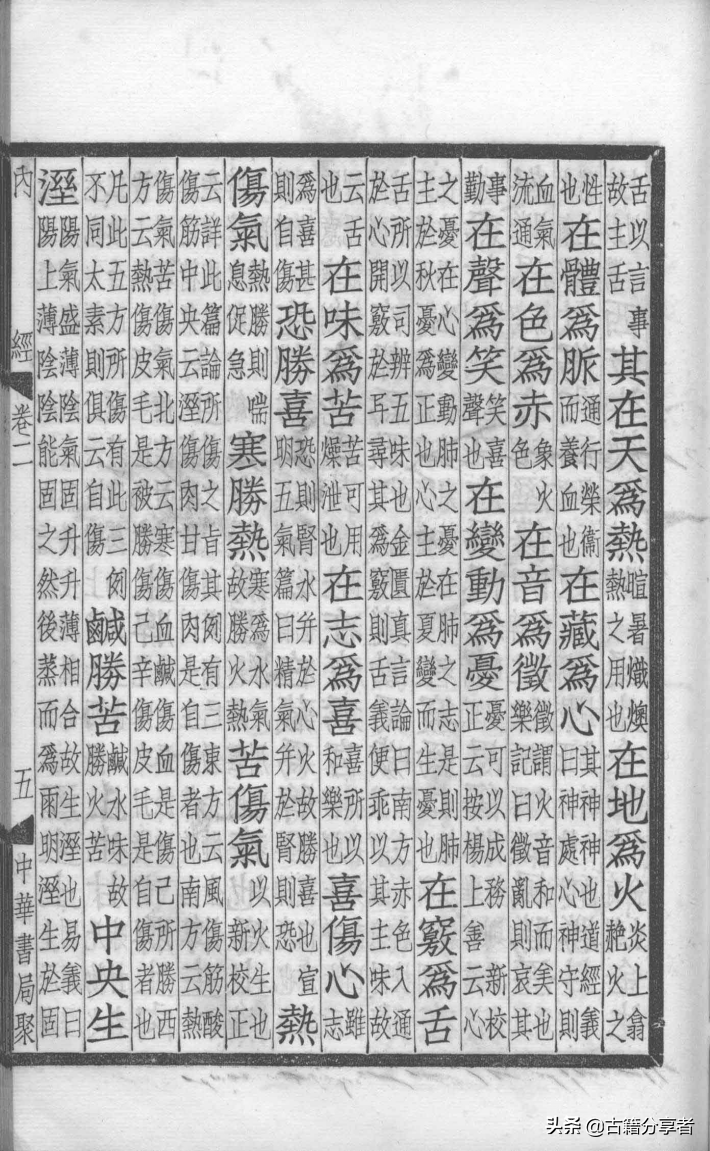 舌以言事故主舌其在天爲熱暄暑熾燠熱之用也在地爲火炎上翕赩火之
性也在體爲脈通行榮衞而養血也在藏爲心其神神也道經義曰神處心神守則
血氣流通在色爲赤象火色在音爲徵徵謂火音和而美也樂記曰徵亂則哀其
事勤在聲爲笑笑喜聲也在變動爲憂憂可以成務新校正云按楊上善云心
之憂在心變動肺之憂在肺之志是則肺主於秋憂爲正也心主於夏變而生憂也在竅爲舌
舌所以司辨五味也金匱真言論曰南方赤色入通於心開竅於耳尋其爲竅則舌義便乖以其主味故
云舌也在味爲苦苦可用燥泄也在志爲喜喜所以和樂也喜傷心雖志
爲喜甚則自傷恐勝喜恐則腎水并於心火故勝喜也宣明五氣篇曰精氣并於腎則恐熱
傷氣熱勝則喘息促急寒勝熱寒爲水氣故勝火熱苦傷氣以火生也新校正
云詳此篇論所傷之旨其例有三東方云風傷筋酸傷筋中央云溼傷肉甘傷肉是自傷者也南方云熱
傷氣苦傷氣北方云寒傷血鹹傷血是傷己所勝西方云熱傷皮毛是被勝傷己辛傷皮毛是自傷者也
凡此五方所傷有此三例不同太素則俱云自傷鹹勝苦鹹水味故勝火苦中央生
溼陽氣盛薄陰氣固升升薄相合故生溼也易義曰陽上薄陰陰能固之然後蒸而爲雨明溼生於固
內經 卷二 五 中華書局聚
头条 @古籍分享者